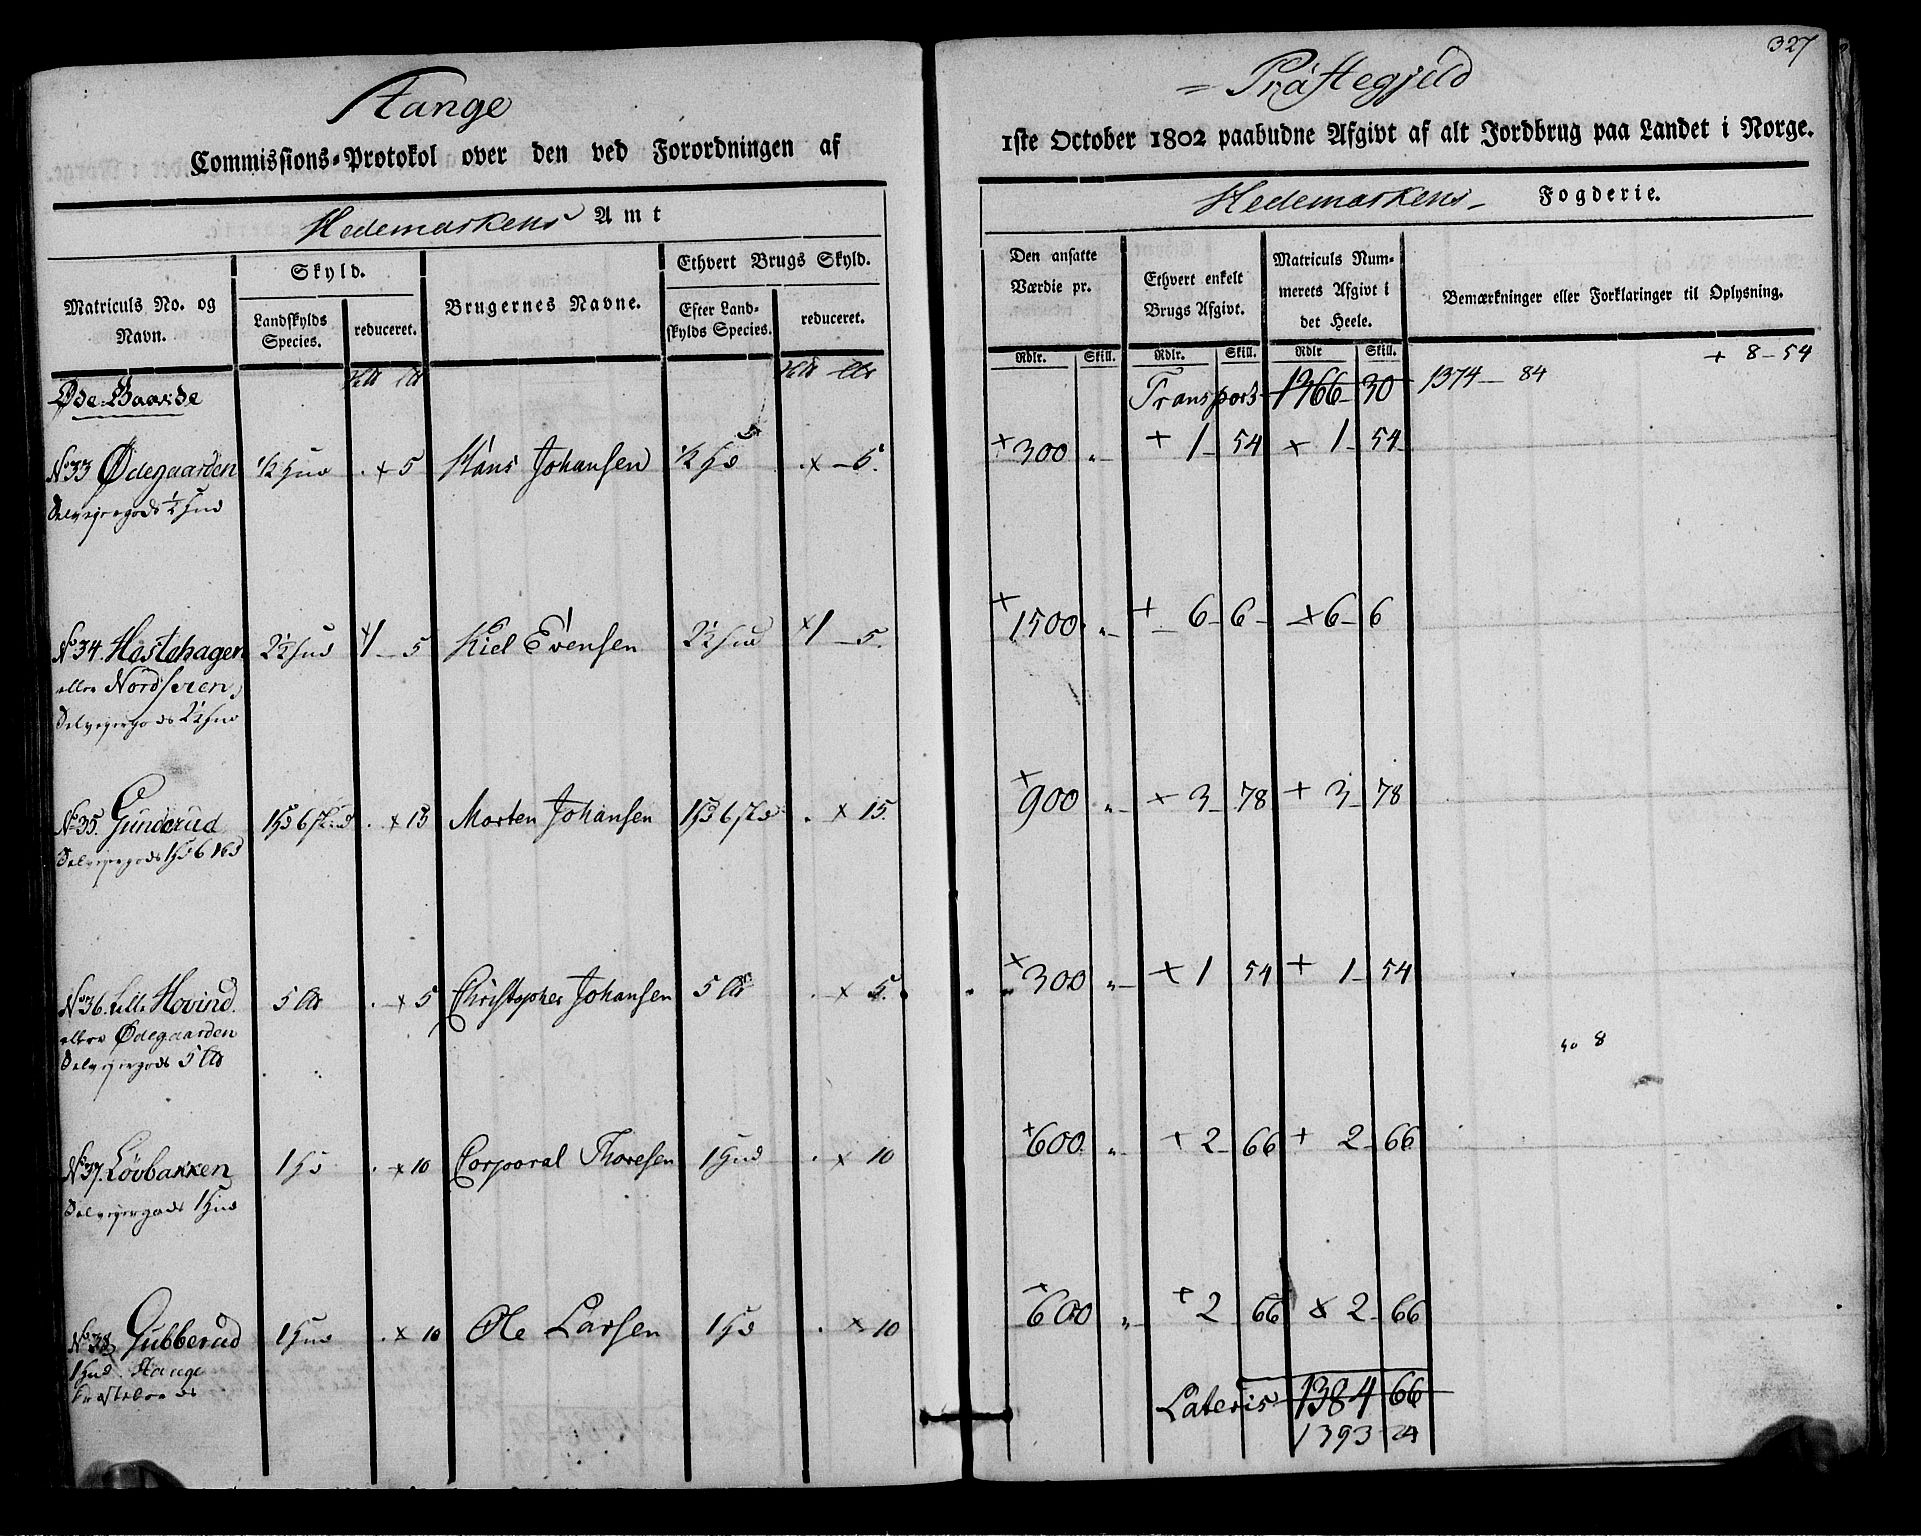 327
Stange
= Præstegjeld
Commissions-Protokol over den ved Forordningen af
1ste October 1802 paabudne Afgivt af alt Jordbrug paa Landet i Norge.
Hedemarkens Amt
Hedemarkens Fogderie.
Matriculs No. og Navn.
Skyld.
Landskylds Species.
reduceret.
Brugernes Navne.
Ethvert Brugs Skyld.
Efter Landskylds Species.
reduceret.
Den ansatte Værdie pr.
Ethvert enkelt Brugs Afgivt.
Matriculs Nummerets Afgivt i det Heele.
Bemærkninger eller Forklaringer til Oplysning.
Rdlr. Skill. Rdlr. Skill. Rdlr Skill.
+ 8 - 54
Øde-Gaarde
Transport 1366 - 30 1374 - 84
No 33 Ødegaarden ½ Hud . + 5 Hans Johansen ½ Hd . x - 5. + 300 „ + 1 - 54 x 1 - 54
Selveyergods ½ Hud
No 34. Hestehagen 2½ Hud x1 - 5 Kiel Evensen 2½ Hud x1 - 5. + 1500 „ + 6 - 6 - x 6 - 6
eller Nordseren,
Selveyergods 2½ Hud
No 35. Gunderud 1 Hd 6 skd . x 15 Morten Johansen 1 Hd 6 skd . x 15. + 900 „ + 3 - 78 + 3 - 78
Selveyergods 1 Hd 6 skd
No 36. Lille Hovind. 5 Ltr . x 5 Christopher Johansen 5 Ltr . x 5. + 300 „ + 1 54 + 1 - 54
eller Ødegaarden
Selveyergods 5 Ltr
8
No 37. Løvbakken 1 Hd . x 10 Corporal Thoresen 1 Hud . x 10 + 600 „ + 2 - 66 + 2 - 66
Selveyergods 1 Hud
No 38 Gubberud 1 Hud . x 10 Ole Larsen 1 Hd . x 10 + 600 „ + 2 66 x 2 - 66
1 Hud Stange
Præsteboe
Lateris 1384 66
1393 24